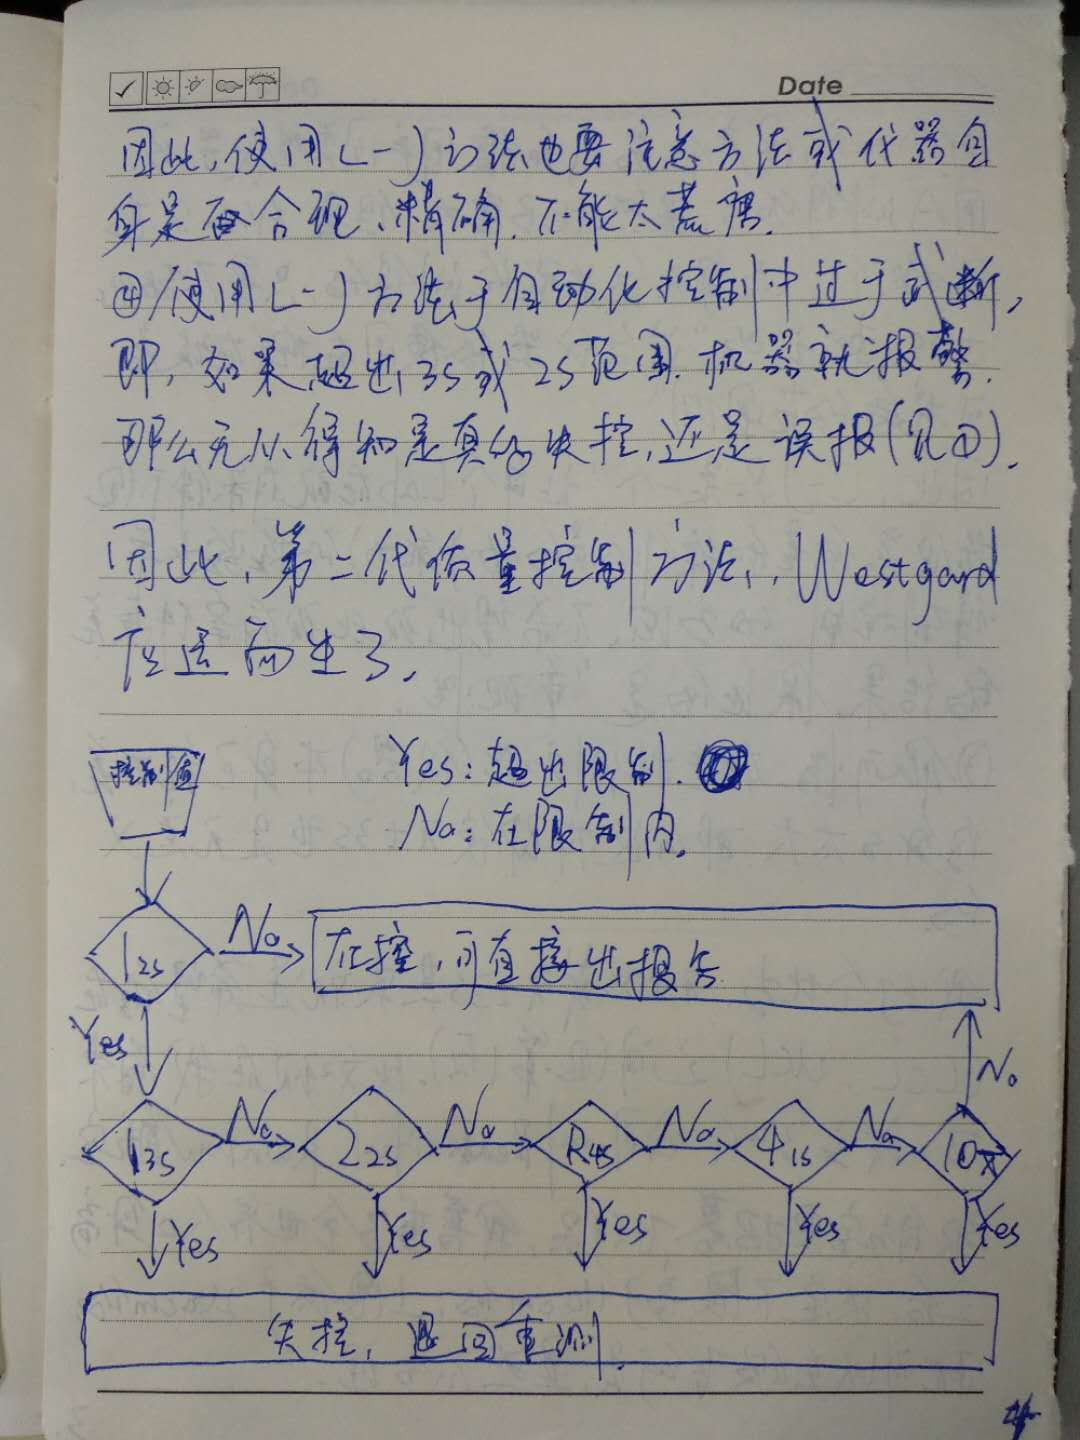 Date
因此,使用L-J方法也要注意方法或仪器自
身是否合理、精确.不能太荒唐.
④/使用L-J方法于自动化控制中过于武断,
即,如果超出3s或2s范围.机器就报警.
那么无从得知是真的失控,还是误报(见①).
因此,第二代质量控制方法,,Westgard
应运而生了.
控制值
Yes:超出限制.
No:在限制内.
1₂s
No
在控,可直接出报告
Yes
No
1₃s
No
2₂s
No
R₄s
No
4₁s
No
10x̄
Yes
Yes
Yes
Yes
Yes
失控,退回重测.